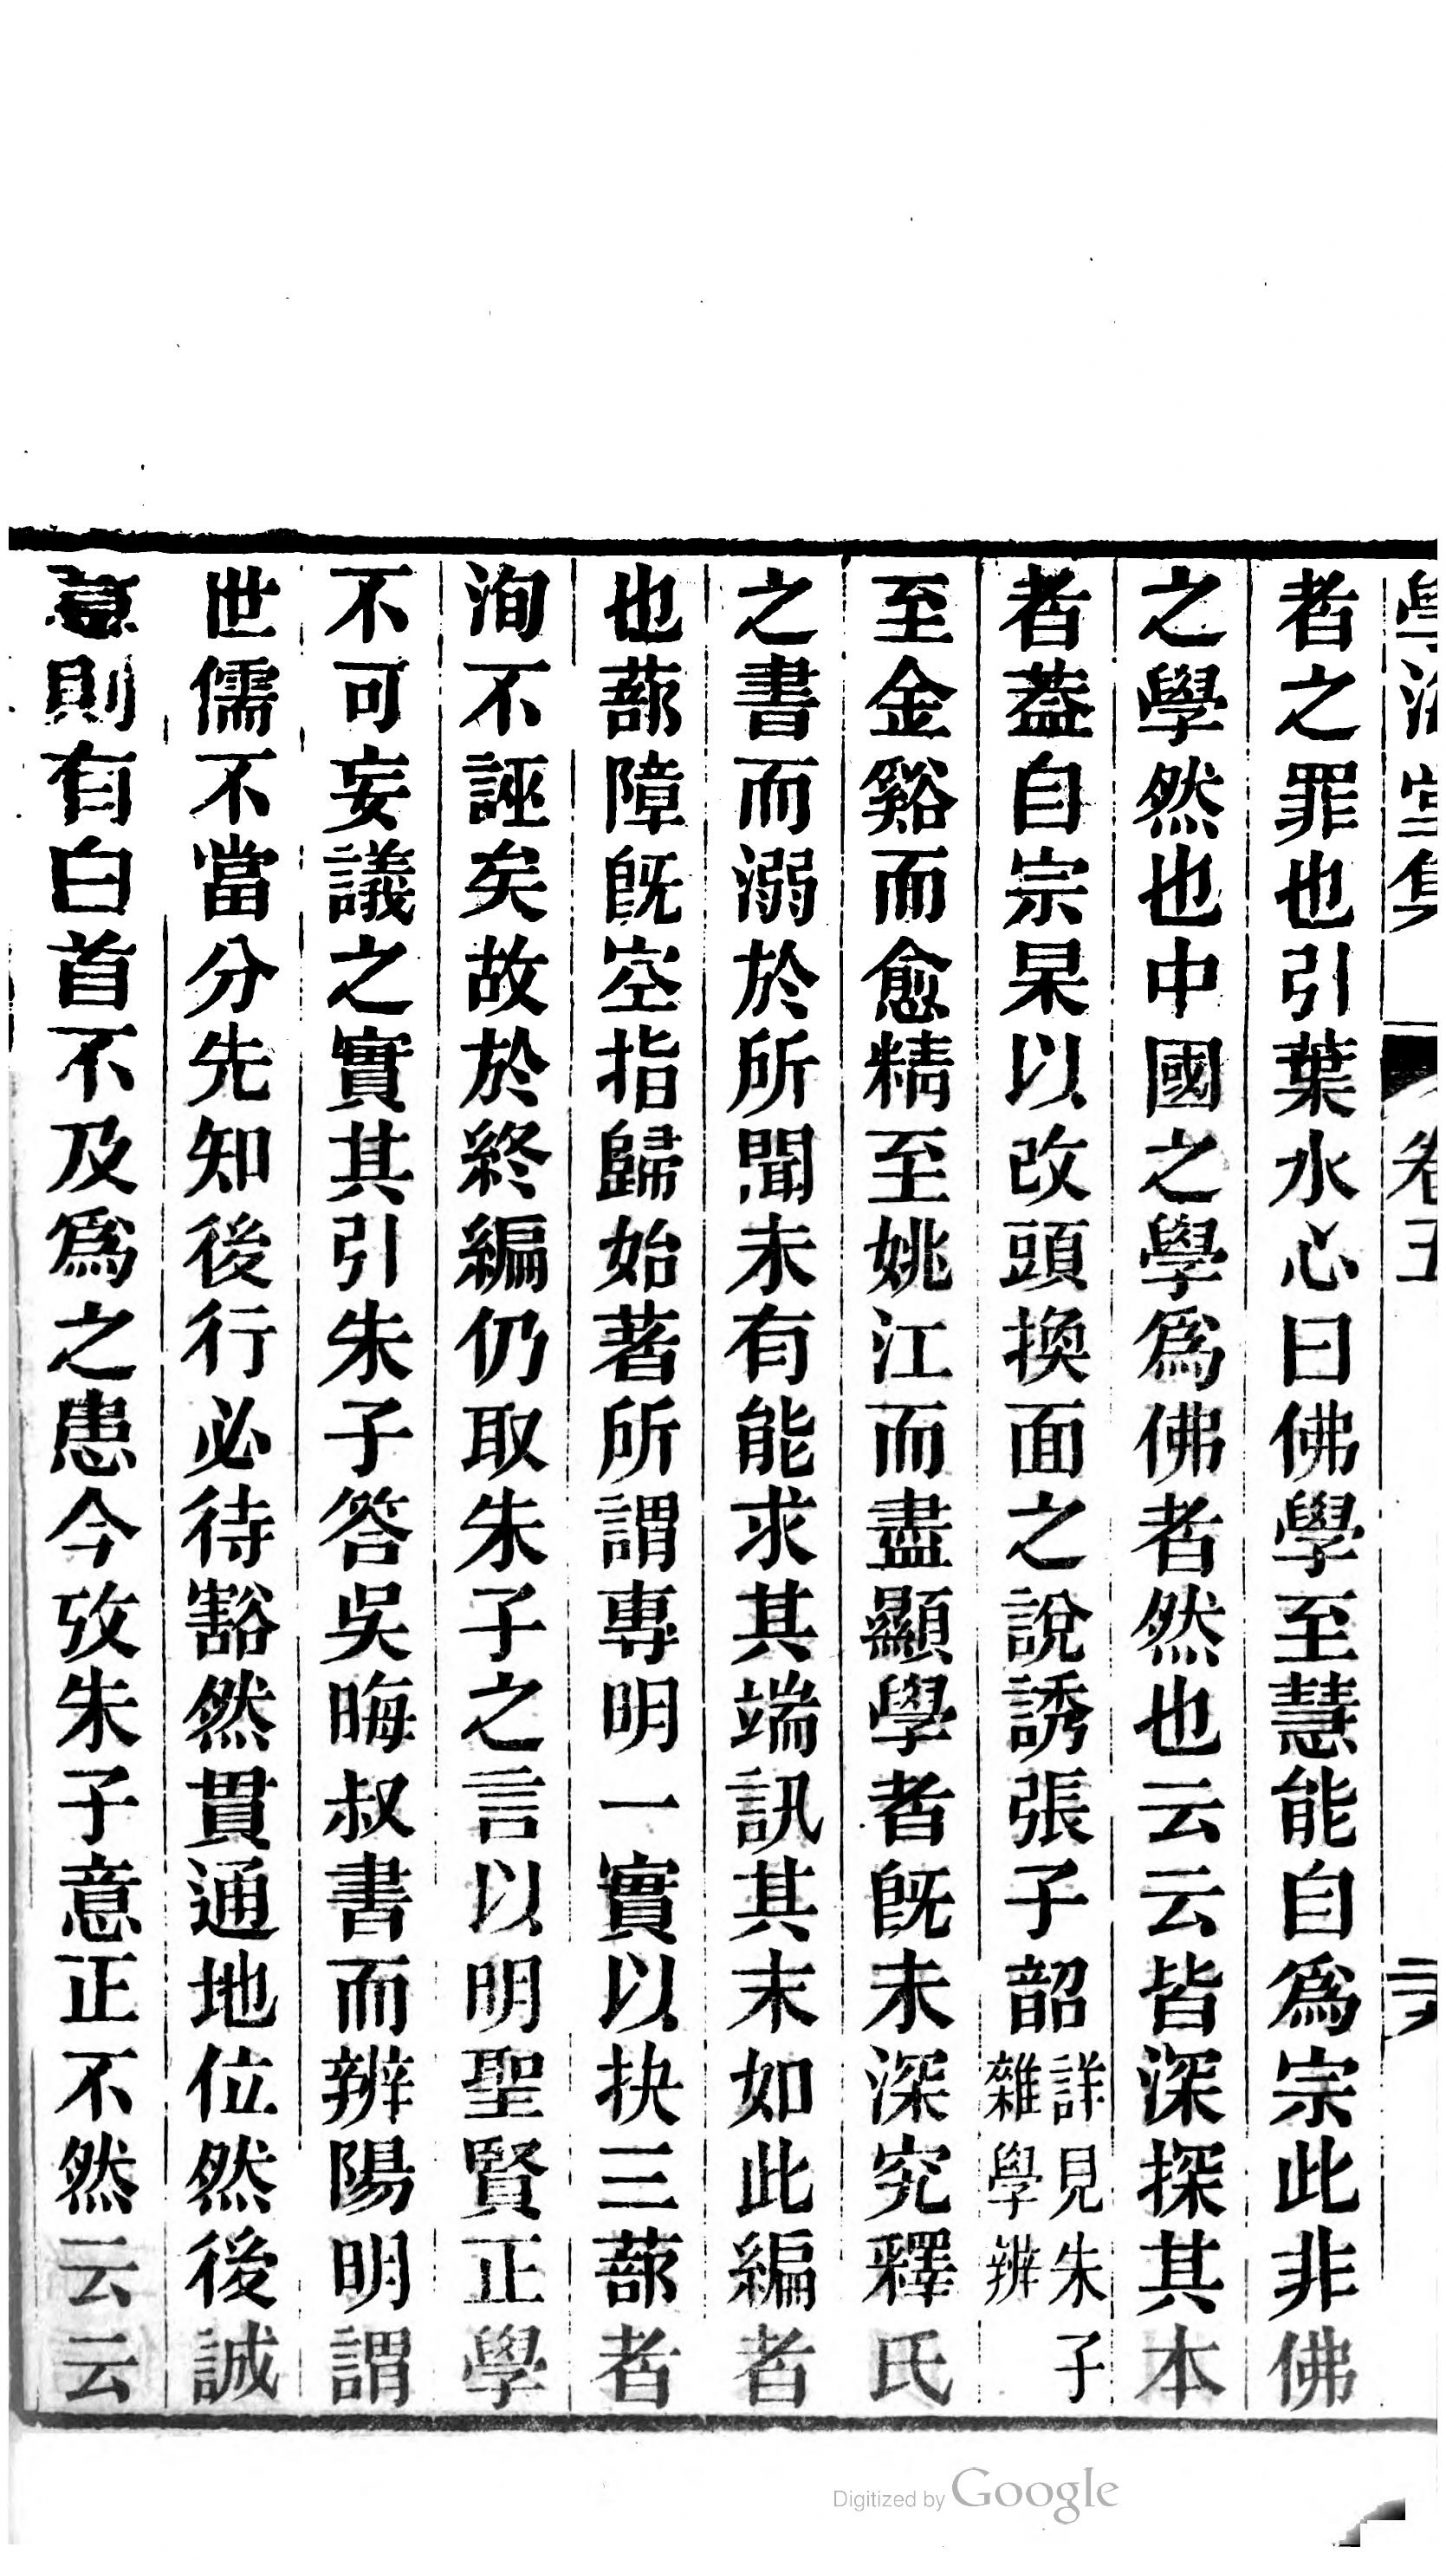 學海堂集 卷五
者之罪也引葉水心曰佛學至慧能自爲宗此非佛
之學然也中國之學爲佛者然也云云皆深探其本
者葢自宗杲以改頭換面之說誘張子韶詳見朱子雜學辨
至金谿而愈精至姚江而盡顯學者旣未深究釋氏
之書而溺於所聞未有能求其端訊其末如此編者
也蔀障旣空指歸始著所謂專明一實以抉三蔀者
洵不誣矣故於終編仍取朱子之言以明聖賢正學
不可妄議之實其引朱子答吳晦叔書而辨陽明謂
世儒不當分先知後行必待豁然貫通地位然後誠
意則有白首不及爲之患今攷朱子意正不然云云
Digitized by Google